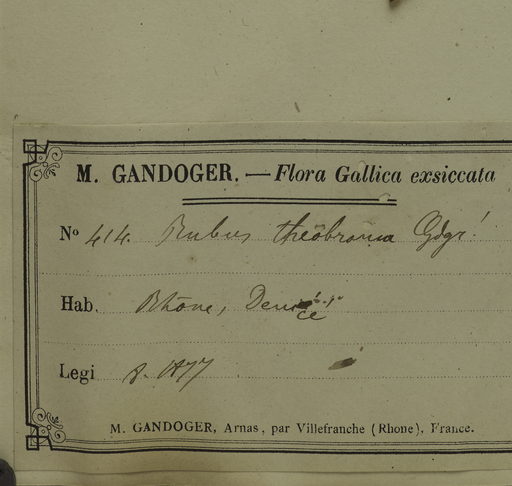 M. GANDOGER. — Flora Gallica exsiccata
Nº 414. Rubus theobroma Gdgr!
Hab. Rhône, Denicé
Legi 8. 1877
M. GANDOGER, Arnas, par Villefranche (Rhone), France.